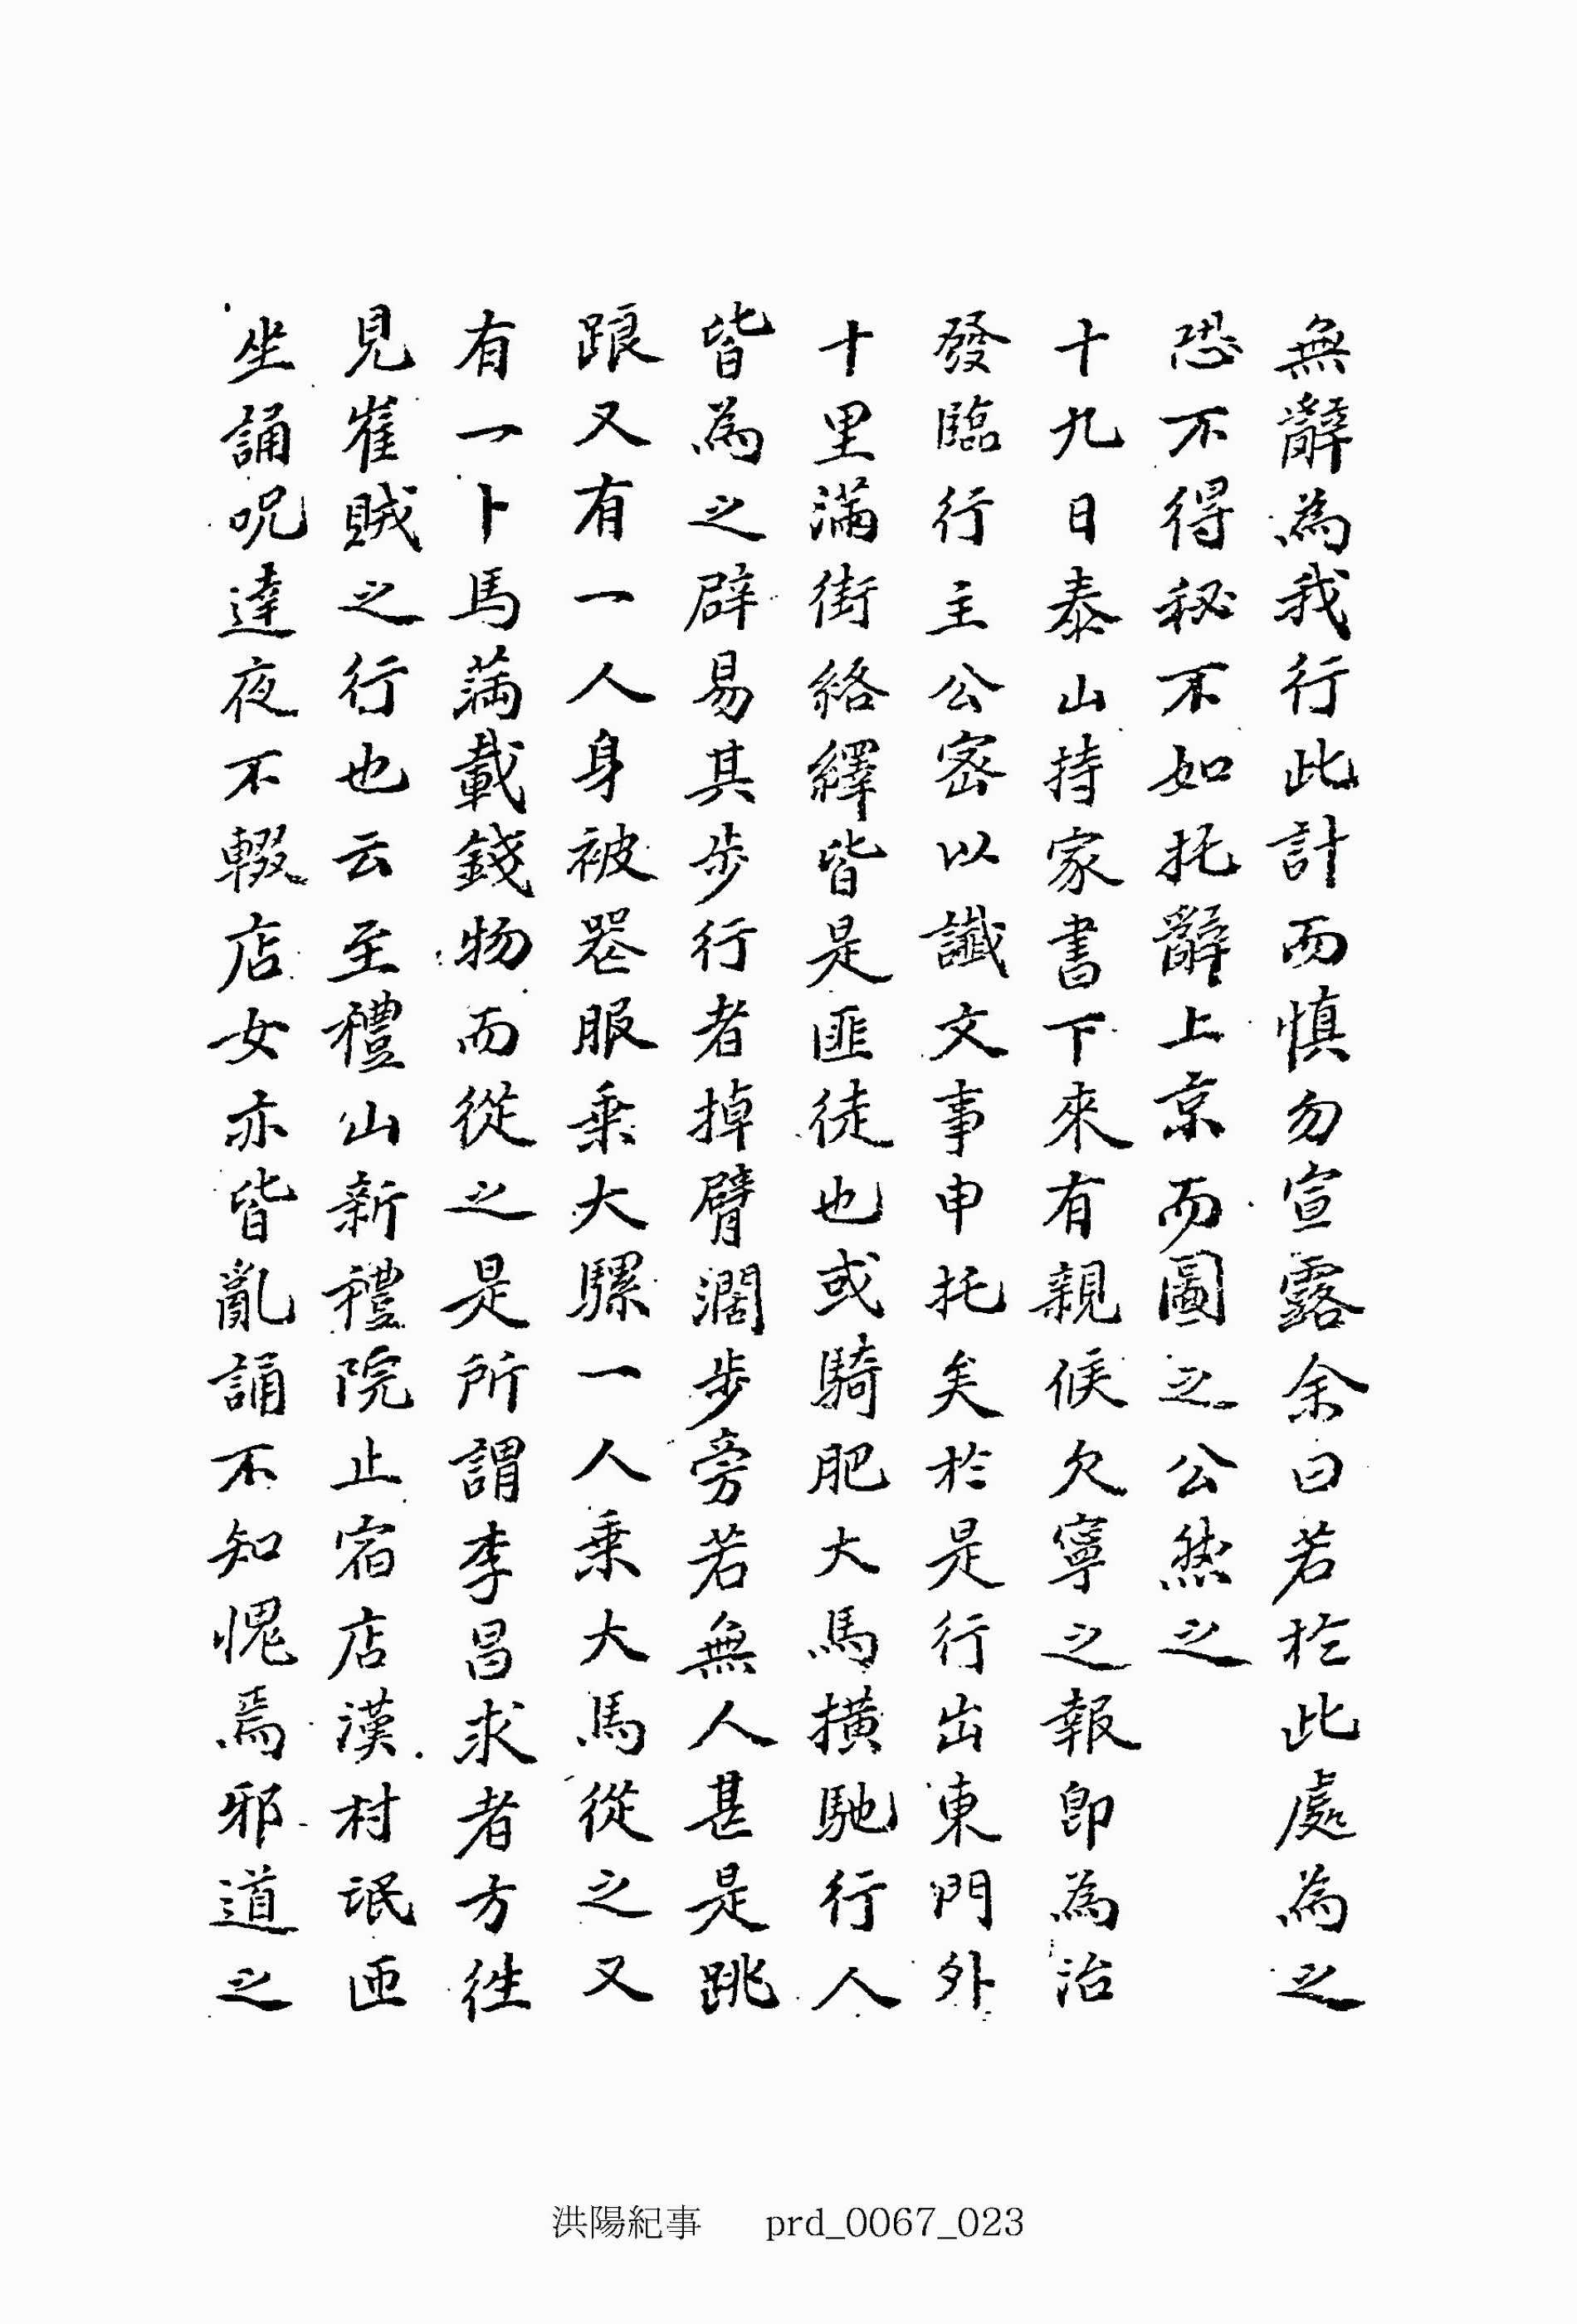 無辭為我行此計而慎勿宣露余曰若於此處為之
恐不得秘不如托辭上京而圖之公然之
十九日泰山持家書下來有親候欠寧之報卽為治
發臨行主公密以讖文事申托矣於是行出東門外
十里滿街絡繹皆是匪徒也或騎肥大馬橫馳行人
皆為之辟易其步行者掉臂濶步旁若無人甚是跳
踉又有一人身被喪服乗大騾一人乗大馬從之又
有一卜馬滿載錢物而從之是所謂李昌求者方徃
見崔賊之行也云至禮山新禮院止宿店漢村氓匝
坐誦呪達夜不輟店女亦皆亂誦不知愧焉邪道之
洪陽紀事 prd_0067_023